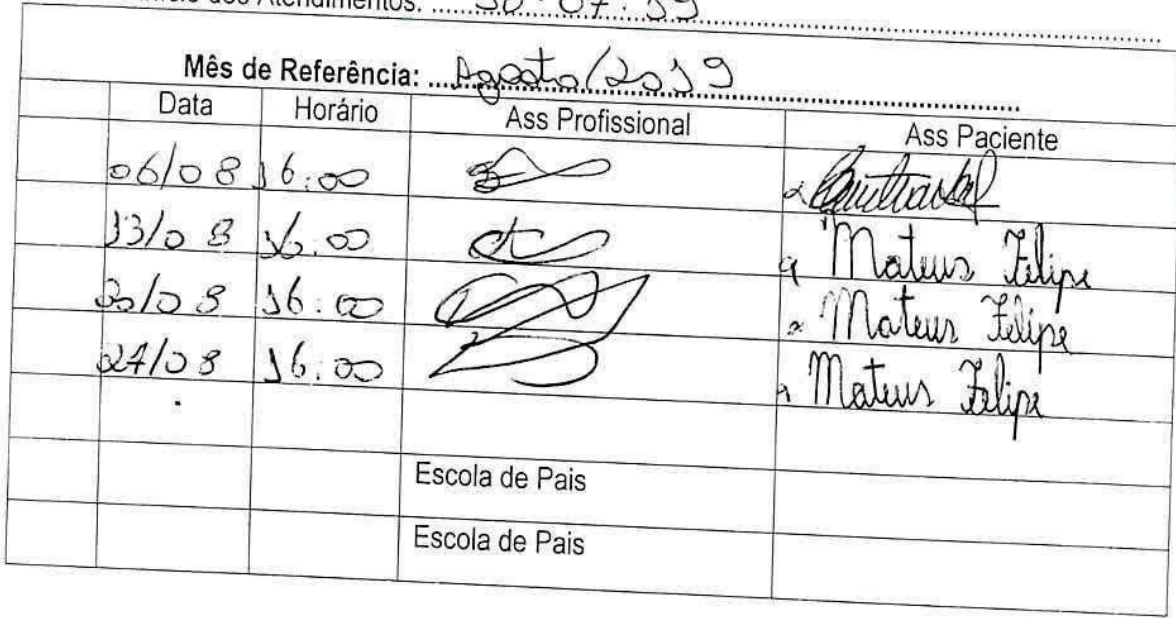 dos Atendimentos: 30.07.19
Mês de Referência: Agosto/2019
Data Horário Ass Profissional Ass Paciente
06/08 16:00
13/08 16:00 Mateus Felipe
20/08 16:00 Mateus Felipe
27/08 16:00 Mateus Felipe
Escola de Pais
Escola de Pais